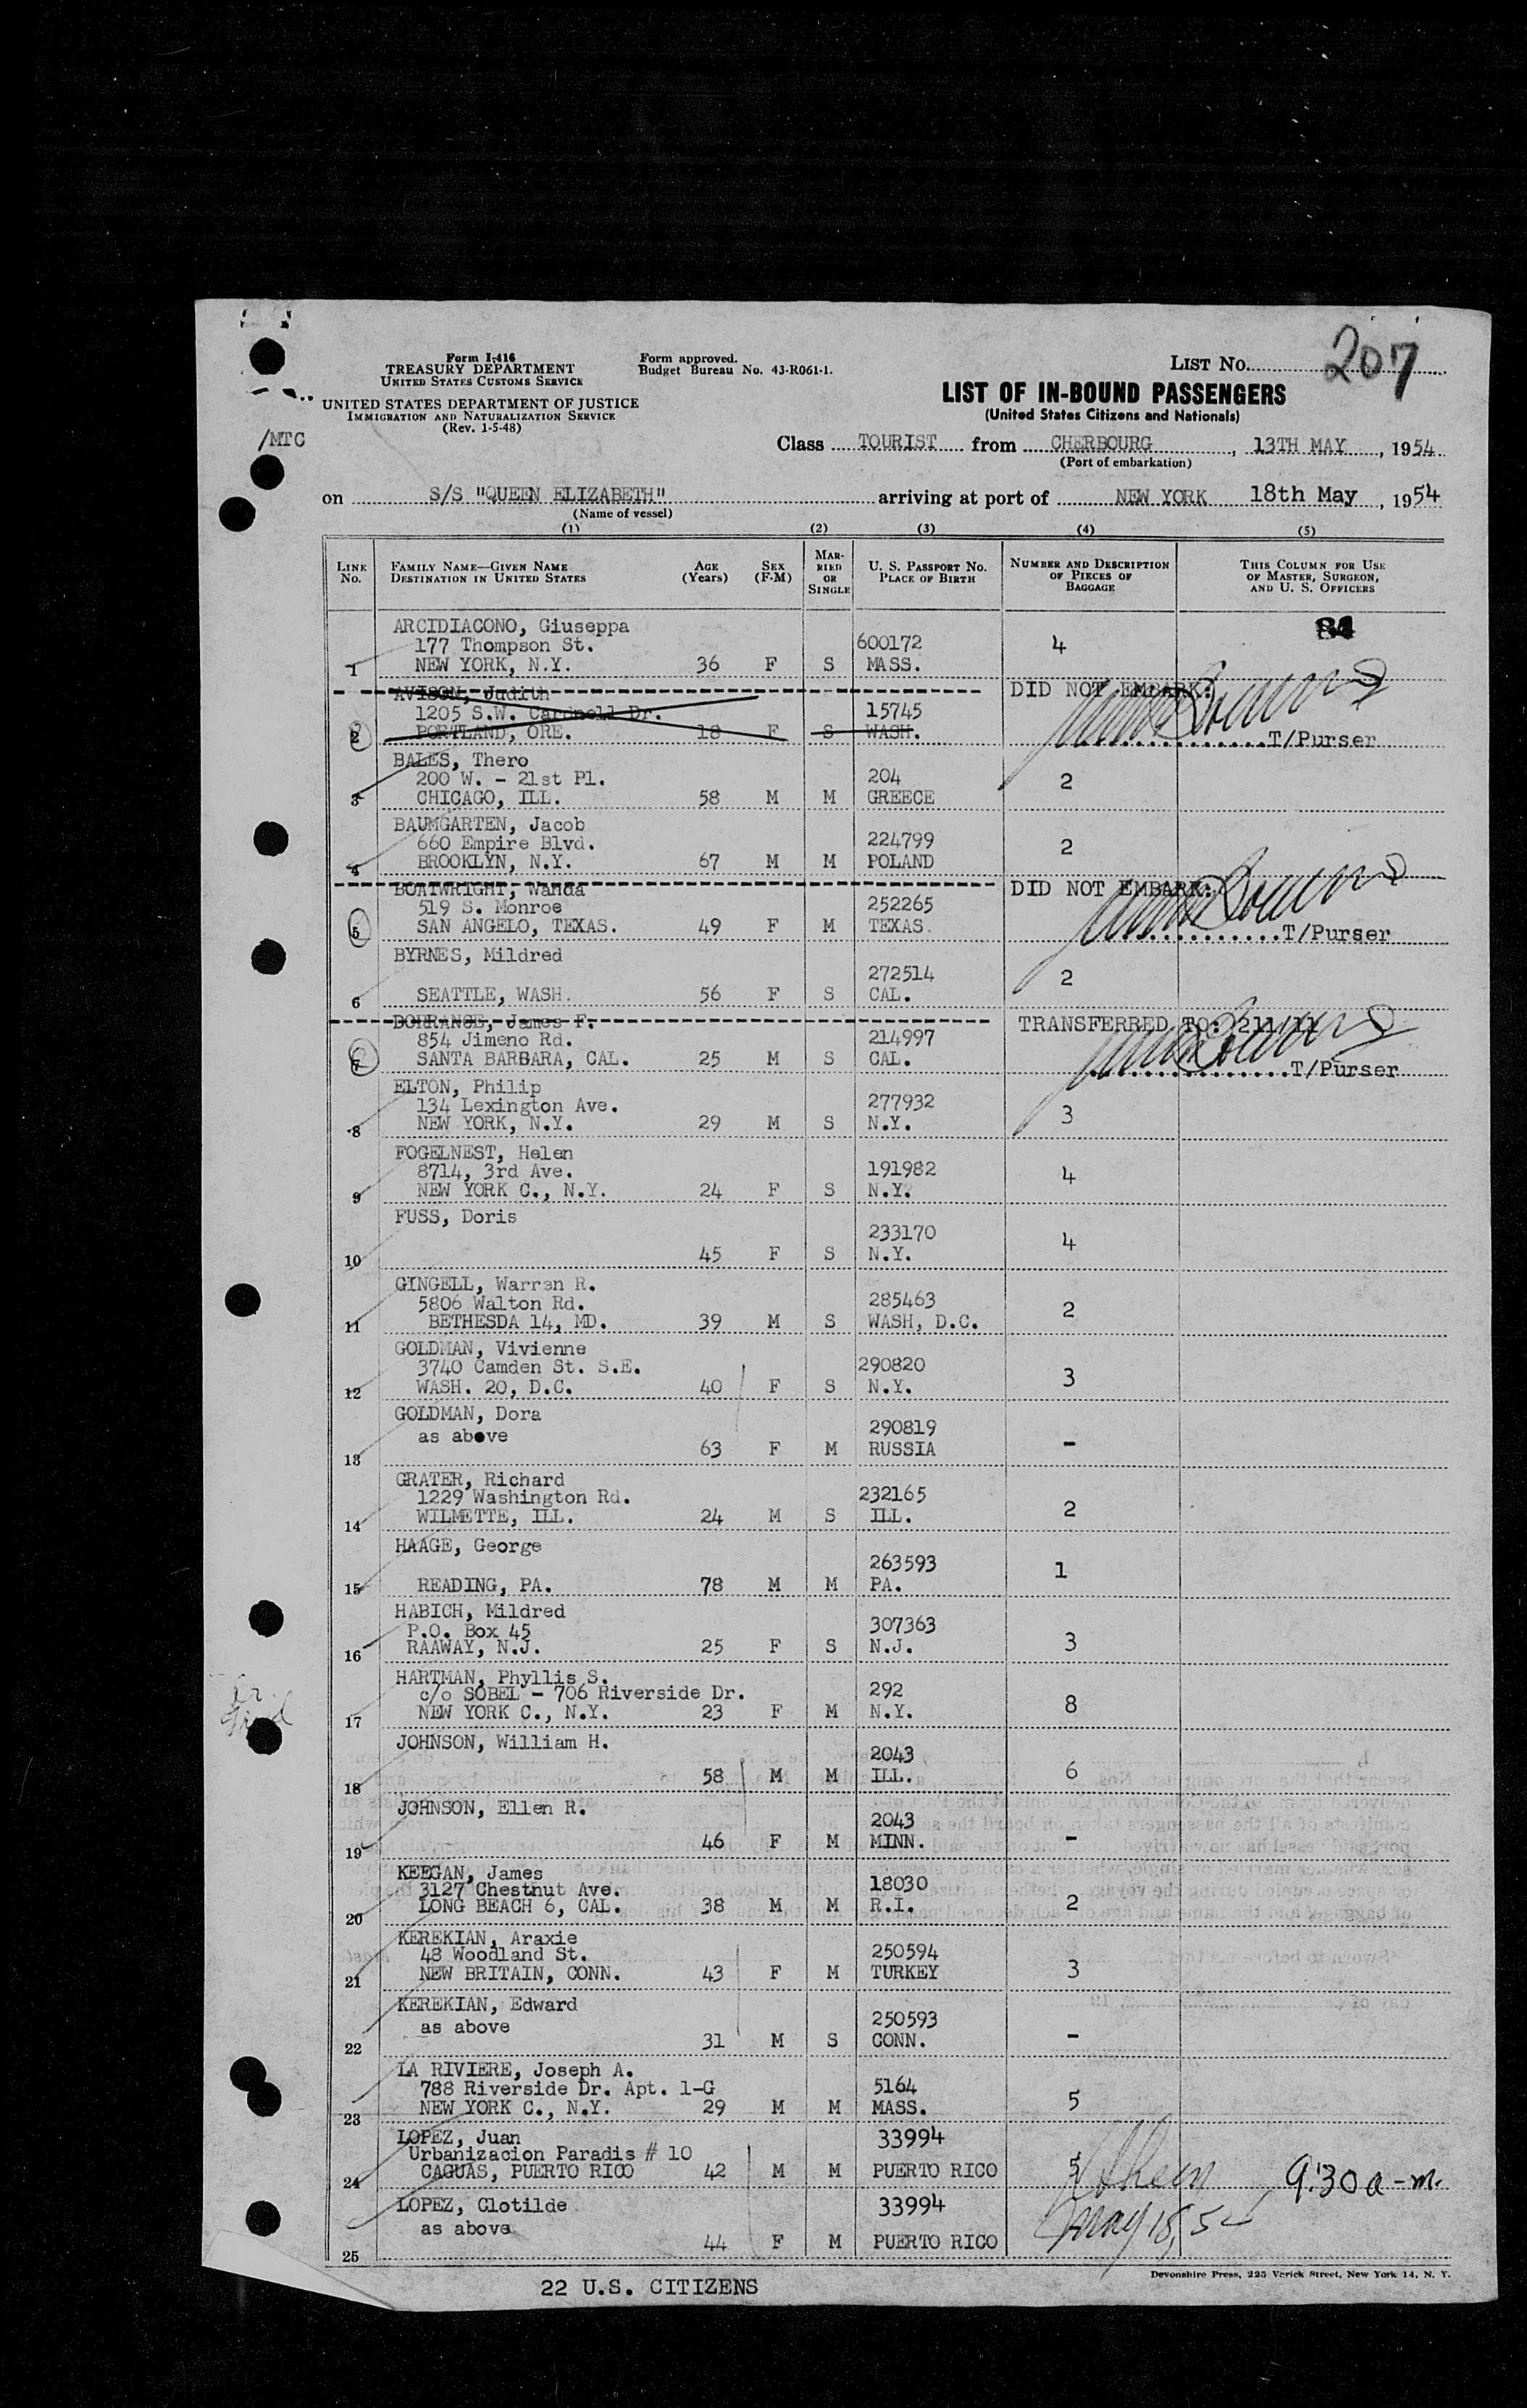 Form I-416
TREASURY DEPARTMENT
UNITED STATES CUSTOMS SERVICE
UNITED STATES DEPARTMENT OF JUSTICE
IMMIGRATION AND NATURALIZATION SERVICE
(Rev. 1-5-48)
Form approved.
Budget Bureau No. 43-R061-1.
LIST No. 207
LIST OF IN-BOUND PASSENGERS
(United States Citizens and Nationals)
/MTC
Class TOURIST from CHERBOURG, 13TH MAY, 1954
(Port of embarkation)
on S/S "QUEEN ELIZABETH" arriving at port of NEW YORK 18th May, 1954
(Name of vessel)
(1) (2) (3) (4) (5)
LINE No. FAMILY NAME—GIVEN NAME DESTINATION IN UNITED STATES AGE (Years) SEX (F-M) MARRIED OR SINGLE U. S. PASSPORT No. PLACE OF BIRTH NUMBER AND DESCRIPTION OF PIECES OF BAGGAGE THIS COLUMN FOR USE OF MASTER, SURGEON, AND U. S. OFFICERS
84
ARCIDIACONO, Giuseppa
177 Thompson St. 600172 4
1 NEW YORK, N.Y. 36 F S MASS.
AVISON, Judith DID NOT EMBARK:
1205 S.W. Cardnell Dr. 15745
2 PORTLAND, ORE. 18 F S WASH. T/Purser
BALES, Thero
200 W. - 21st Pl. 204 2
3 CHICAGO, ILL. 58 M M GREECE
BAUMGARTEN, Jacob
660 Empire Blvd. 224799 2
4 BROOKLYN, N.Y. 67 M M POLAND
BOATWRIGHT, Wanda DID NOT EMBARK:
519 S. Monroe 252265
5 SAN ANGELO, TEXAS. 49 F M TEXAS. T/Purser
BYRNES, Mildred
272514 2
6 SEATTLE, WASH. 56 F S CAL.
DORRANCE, James F. TRANSFERRED TO: 211/11
854 Jimeno Rd. 214997
7 SANTA BARBARA, CAL. 25 M S CAL. T/Purser
ELTON, Philip
134 Lexington Ave. 277932 3
8 NEW YORK, N.Y. 29 M S N.Y.
FOGELNEST, Helen
8714, 3rd Ave. 191982 4
9 NEW YORK C., N.Y. 24 F S N.Y.
FUSS, Doris
233170 4
10 45 F S N.Y.
GINGELL, Warren R.
5806 Walton Rd. 285463 2
11 BETHESDA 14, MD. 39 M S WASH, D.C.
GOLDMAN, Vivienne
3740 Camden St. S.E. 290820 3
12 WASH. 20, D.C. 40 F S N.Y.
GOLDMAN, Dora
as above 290819 -
13 63 F M RUSSIA
GRATER, Richard
1229 Washington Rd. 232165 2
14 WILMETTE, ILL. 24 M S ILL.
HAAGE, George
263593 1
15 READING, PA. 78 M M PA.
HABICH, Mildred
P.O. Box 45 307363 3
16 RAAWAY, N.J. 25 F S N.J.
HARTMAN, Phyllis S.
c/o SOBEL - 706 Riverside Dr. 292 8
17 NEW YORK C., N.Y. 23 F M N.Y.
JOHNSON, William H.
2043 6
18 58 M M ILL.
JOHNSON, Ellen R.
2043 -
19 46 F M MINN.
KEEGAN, James
3127 Chestnut Ave. 18030 2
20 LONG BEACH 6, CAL. 38 M M R.I.
KEREKIAN, Araxie
48 Woodland St. 250594 3
21 NEW BRITAIN, CONN. 43 F M TURKEY
KEREKIAN, Edward
as above 250593 -
22 31 M S CONN.
LA RIVIERE, Joseph A.
788 Riverside Dr. Apt. 1-G 5164 5
23 NEW YORK C., N.Y. 29 M M MASS.
LOPEZ, Juan 33994
Urbanizacion Paradis # 10 5
24 CAGUAS, PUERTO RICO 42 M M PUERTO RICO 9:30 a-m.
LOPEZ, Clotilde 33994
as above May 18, 54
25 44 F M PUERTO RICO
Devonshire Press, 225 Verick Street, New York 14, N. Y.
22 U.S. CITIZENS